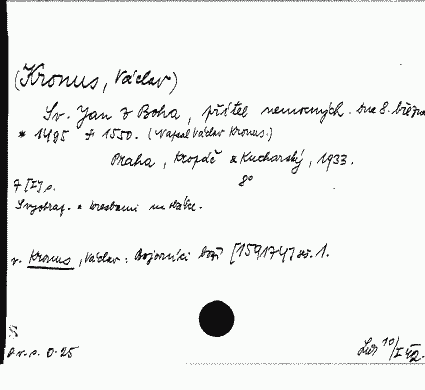 (Kronus, Václav)
Sv. Jan z Boha, přítel nemocných. Dne 8. března
* 1495 † 1550. (Napsal Václav Kronus.)
Praha, Kropáč & Kucharský, 1933.
8°
7 [I] s.
S vyobraz. a kresbami na obálce.
v. Kronus, Václav: Bojovníci boží [159174] sv. 1.
S
D r. s. 0-25
10/I 42.